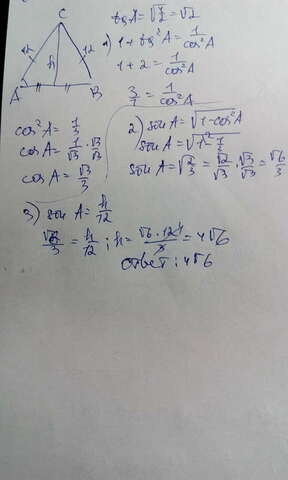 C
12
h
12
A
B
tg A = √2/1 = √2
1) 1 + tg²A = 1/cos²A
1 + 2 = 1/cos²A
3/1 = 1/cos²A
cos²A = 1/3
cos A = 1/√3 · √3/√3
cos A = √3/3
2) sin A = √(1-cos²A)
sin A = √(1-1/3)
sin A = √(2/3) = √2/√3 · √3/√3 = √6/3
3) sin A = h/12
√6/3 = h/12 ; h = √6·12 4/3 = 4√6
ответ: 4√6